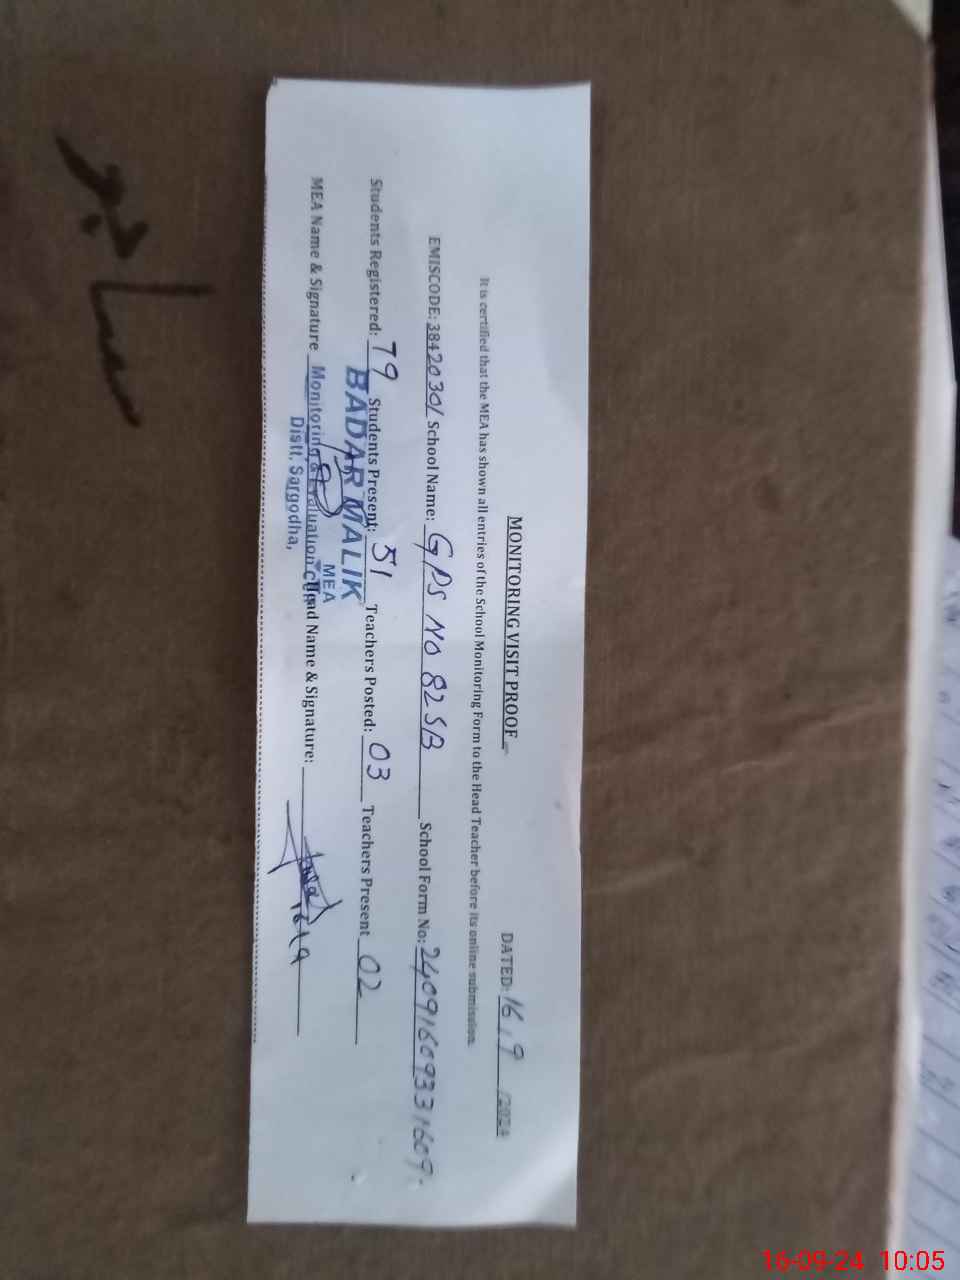 MONITORING VISIT PROOF
DATED: 16.9/2024
It is certified that the MEA has shown all entries of the School Monitoring Form to the Head Teacher before its online submission.
EMISCODE: 38420301 School Name: GPS No 82 SB School Form No: 2409160933 1609.
Students Registered: 79 Students Present: 51 Teachers Posted: 03 Teachers Present 02
BADAR MALIK
MEA
MEA Name & Signature Monitoring & Evaluation Head Name & Signature:
Distt. Sargodha,
16-09-24 10:05